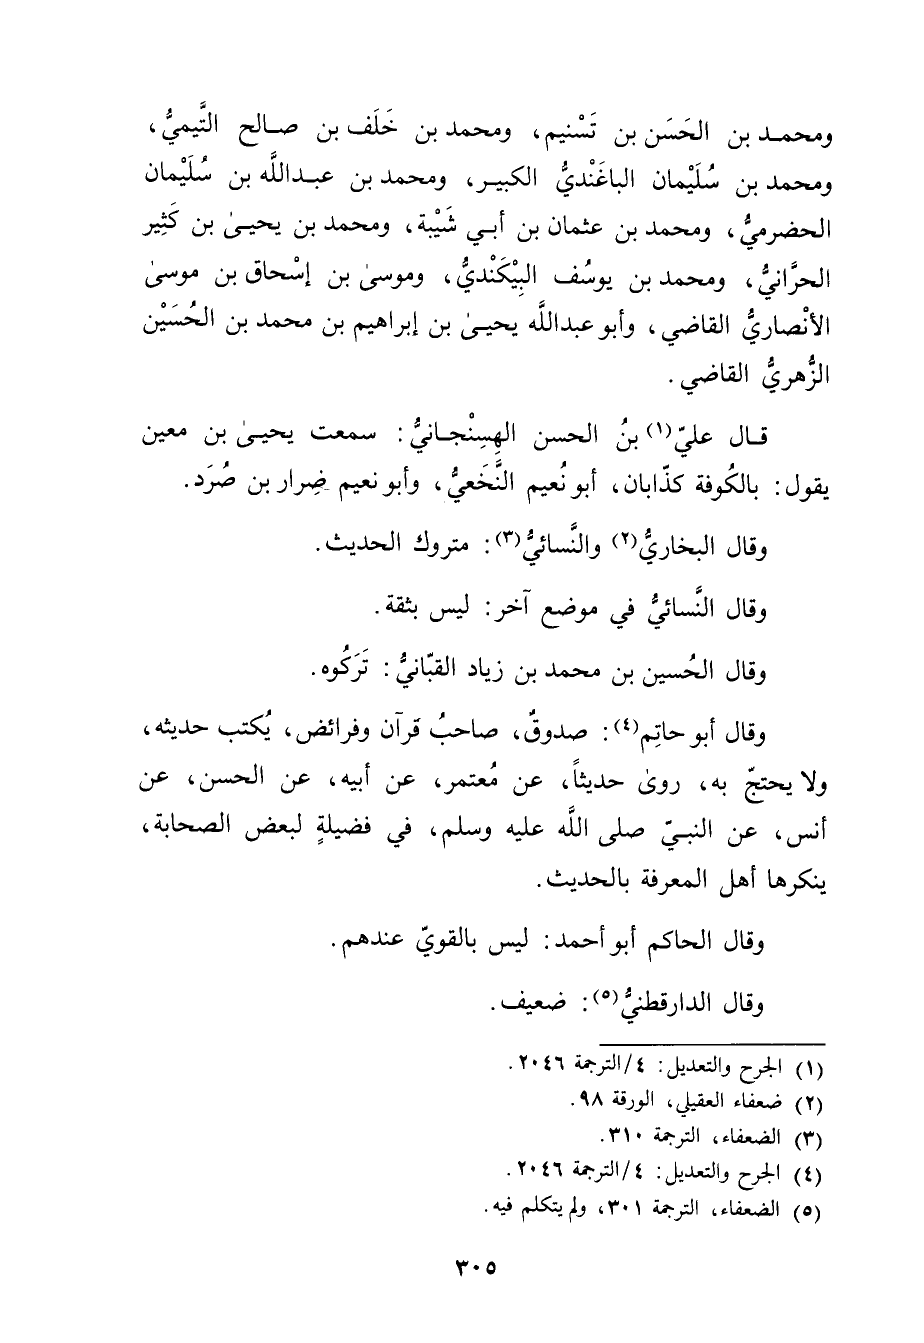 ومحمد بن الحَسَن بن تَسْنيم، ومحمد بن خَلَف بن صالح التَّيميُّ،
ومحمد بن سُلَيْمان الباغَنْديُّ الكبير، ومحمد بن عبدالله بن سُلَيْمان
الحضرميُّ، ومحمد بن عثمان بن أبي شَيْبة، ومحمد بن يحيىٰ بن كَثِير
الحرَّانيُّ، ومحمد بن يوسُف البِيْكَنْديُّ، وموسىٰ بن إسْحاق بن موسىٰ
الأنْصاريُّ القاضي، وأبو عبدالله يحيىٰ بن إبراهيم بن محمد بن الحُسَيْن
الزُّهريُّ القاضي.
قال عليّ(١) بنُ الحسن الهِسِنْجانيُّ: سمعت يحيىٰ بن معين
يقول: بالكُوفة كذّابان، أبو نُعيم النَّخَعيُّ، وأبو نعيم ضِرار بن صُرَد.
وقال البخاريُّ(٢) والنَّسائيُّ(٣): متروك الحديث.
وقال النَّسائيُّ في موضع آخر: ليس بثقة.
وقال الحُسين بن محمد بن زياد القبّانيُّ: تَرَكُوه.
وقال أبو حاتِم(٤): صدوقٌ، صاحبُ قرآن وفرائض، يُكتب حديثه،
ولا يحتجّ به، روىٰ حديثاً، عن مُعتمر، عن أبيه، عن الحسن، عن
أنس، عن النبيّ صلى الله عليه وسلم، في فضيلةٍ لبعض الصحابة،
ينكرها أهل المعرفة بالحديث.
وقال الحاكم أبو أحمد: ليس بالقويّ عندهم.
وقال الدارقطنيُّ(٥): ضعيف.
(١) الجرح والتعديل: ٤/الترجمة ٢٠٤٦.
(٢) ضعفاء العقيلي، الورقة ٩٨.
(٣) الضعفاء، الترجمة ٣١٠.
(٤) الجرح والتعديل: ٤/الترجمة ٢٠٤٦.
(٥) الضعفاء، الترجمة ٣٠١، ولم يتكلم فيه.
٣٠٥